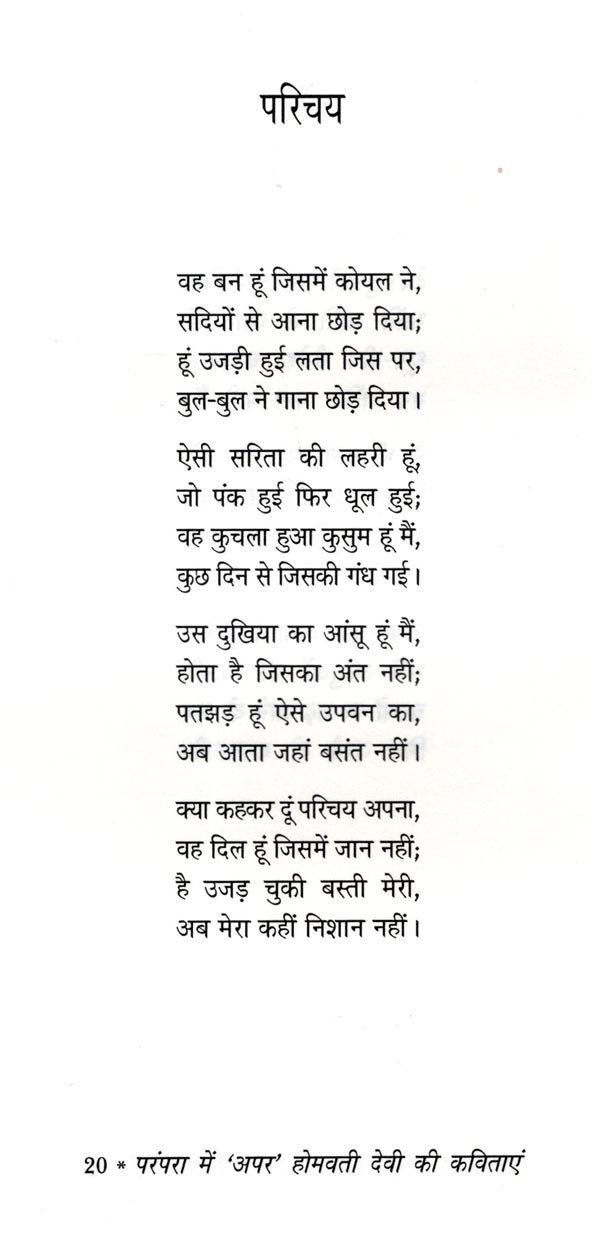 परिचय
वह बन हूं जिसमें कोयल ने,
सदियों से आना छोड़ दिया;
हूं उजड़ी हुई लता जिस पर,
बुल-बुल ने गाना छोड़ दिया।
ऐसी सरिता की लहरी हूं,
जो पंक हुई फिर धूल हुई;
वह कुचला हुआ कुसुम हूं मैं,
कुछ दिन से जिसकी गंध गई।
उस दुखिया का आंसू हूं मैं,
होता है जिसका अंत नहीं;
पतझड़ हूं ऐसे उपवन का,
अब आता जहां बसंत नहीं।
क्या कहकर दूं परिचय अपना,
वह दिल हूं जिसमें जान नहीं;
है उजड़ चुकी बस्ती मेरी,
अब मेरा कहीं निशान नहीं।
20 * परंपरा में ‘अपर’ होमवती देवी की कविताएं